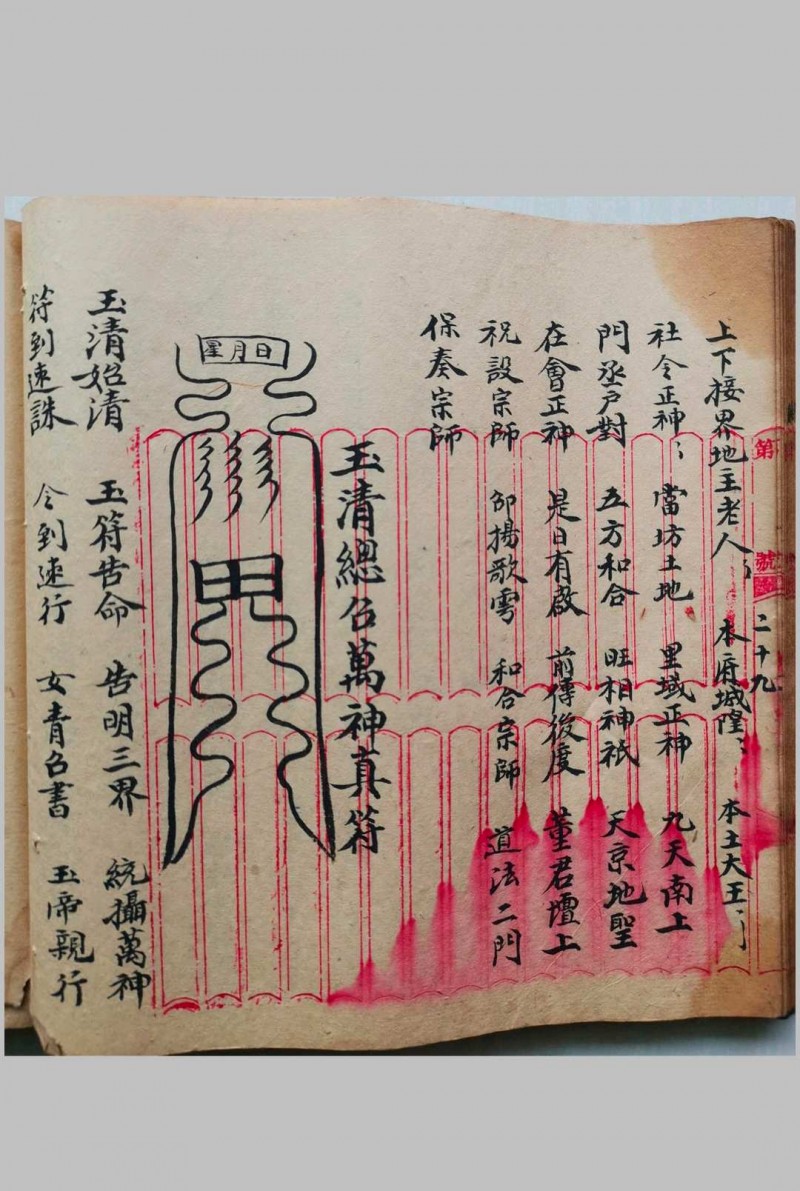 第 號
二十九
上下接界地主老人 本府城隍 本土大王
社令正神 當坊土地 里域正神 九天南上
門丞户對 五方和合 旺相神祇 天京地聖
在會正神 是日有啟 前傳後度 董君壇上
祝設宗師 邵揚歌雩 和合宗師 道法二門
保奏宗師
玉清總召萬神真符
日月星
玉清始清 玉符告命 告明三界 統攝萬神
符到速誅 令到速行 女青召書 玉帝親行